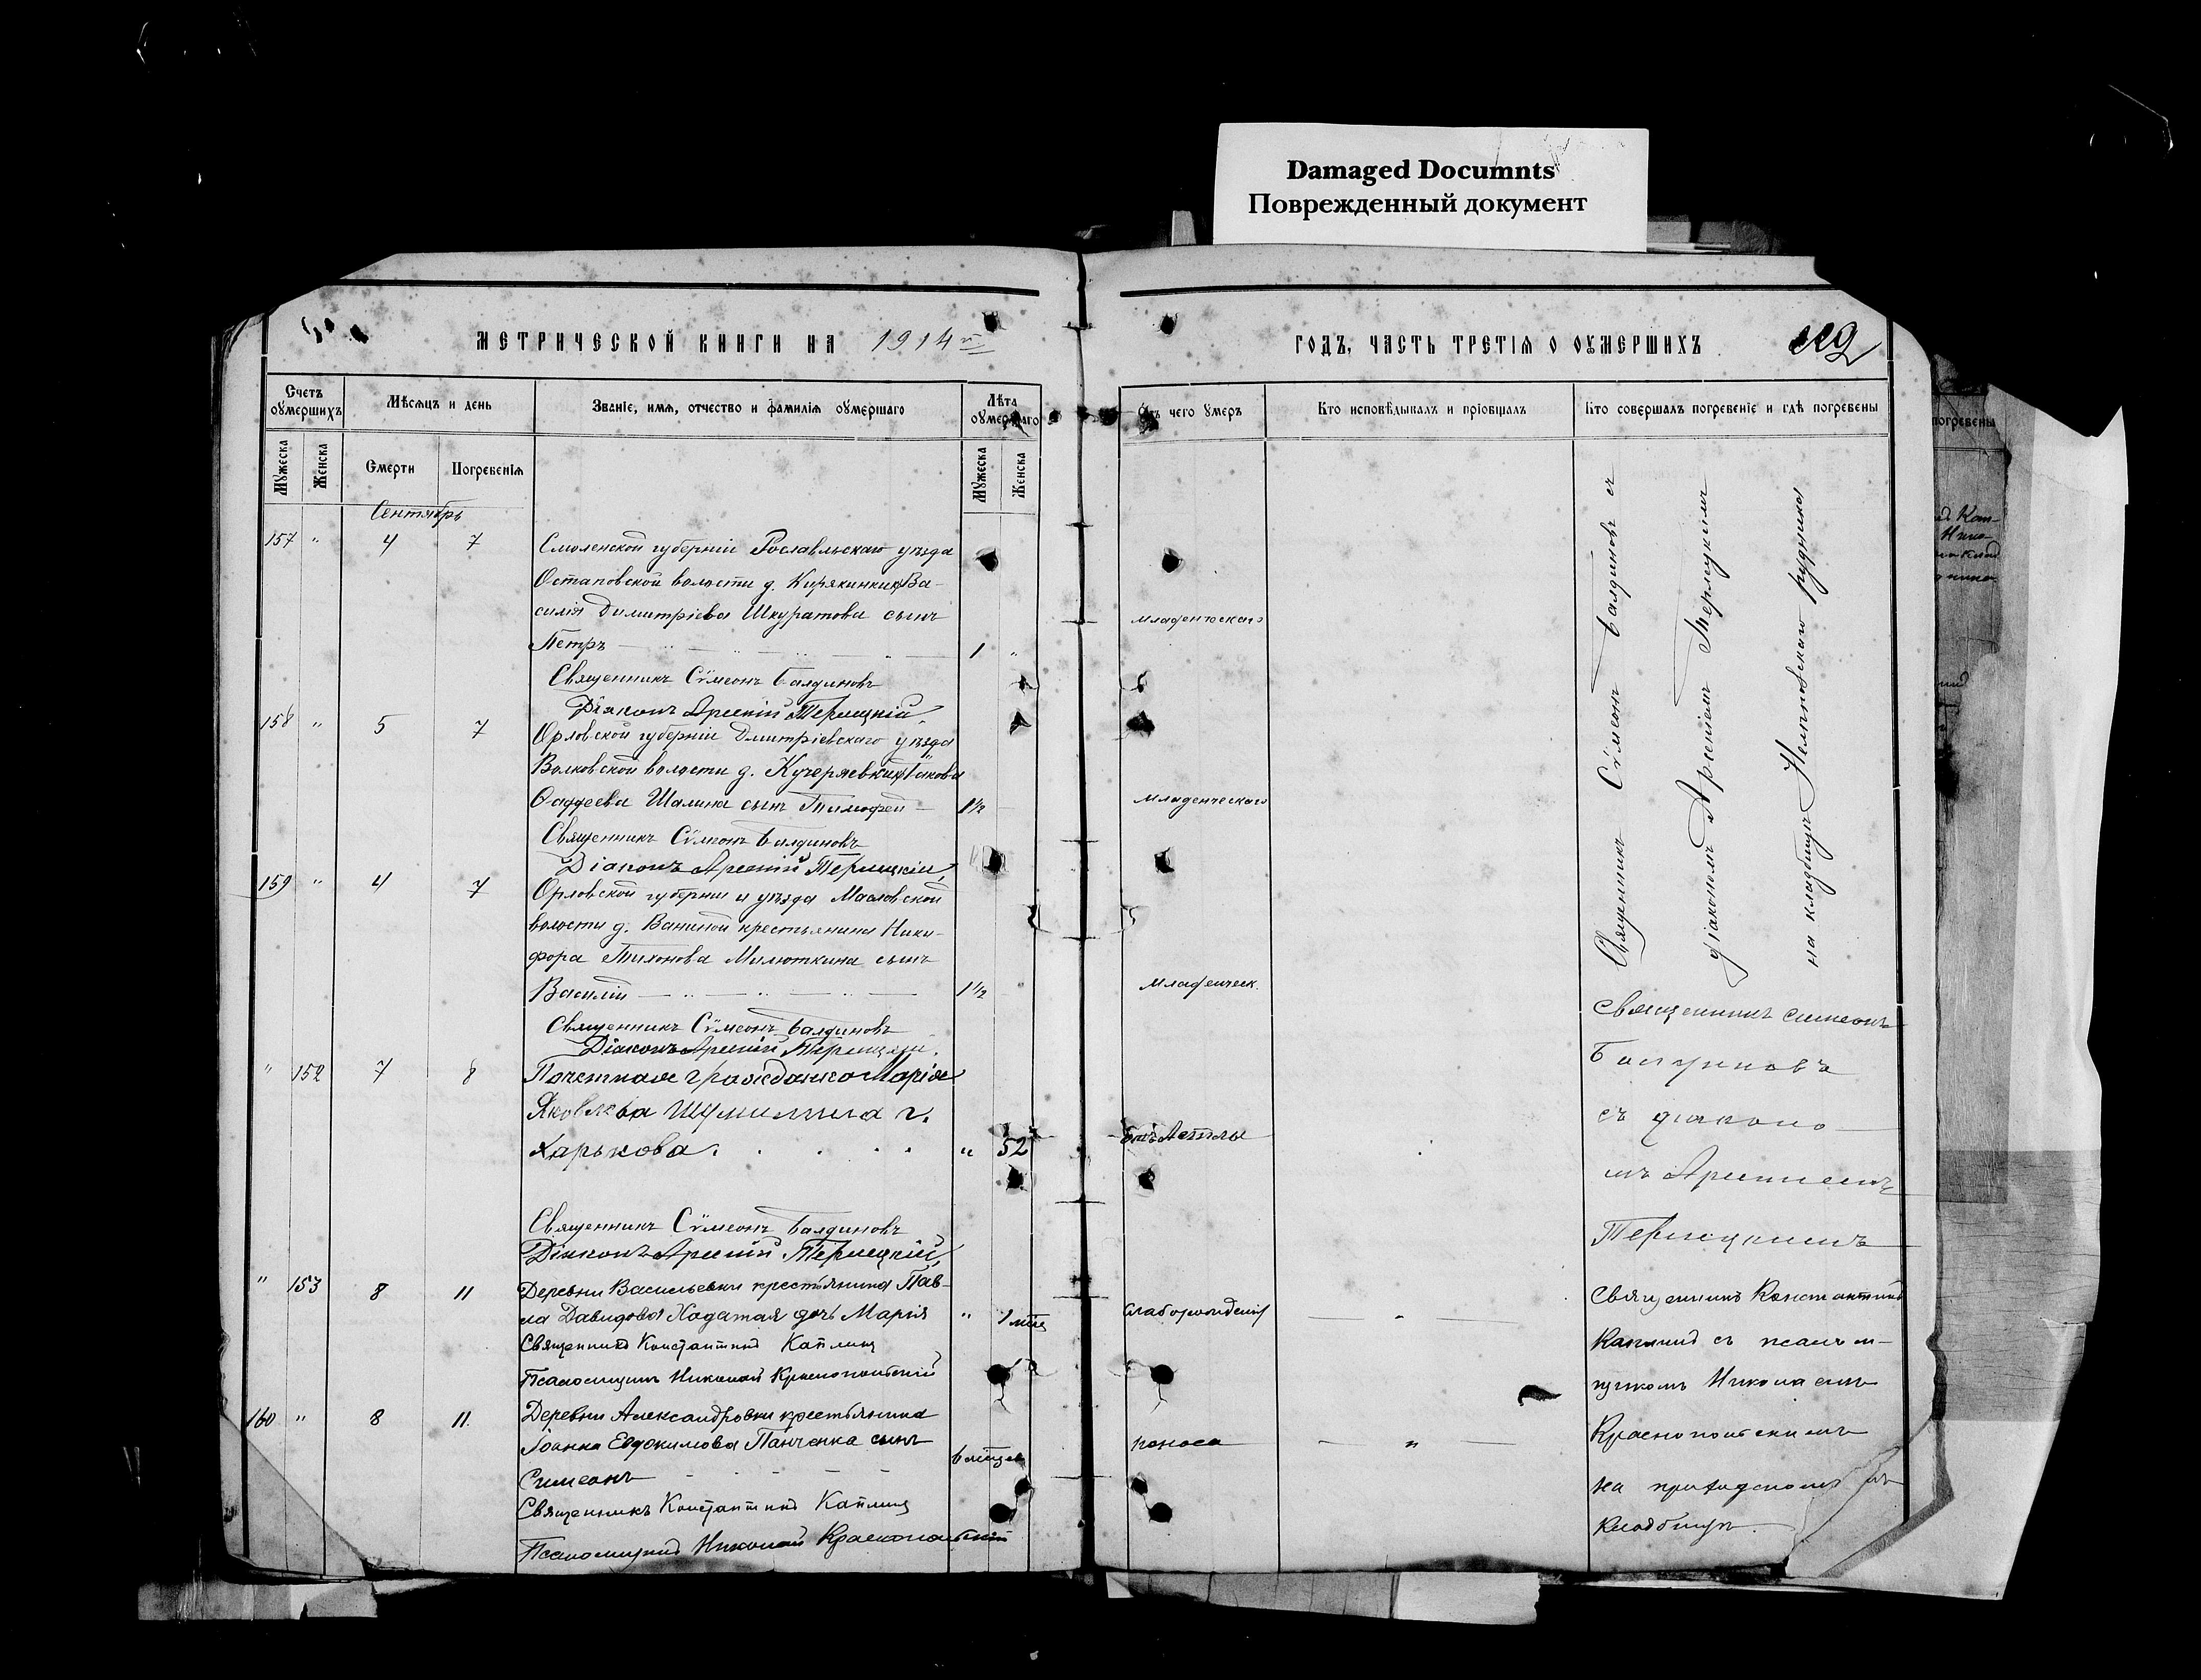 Damaged Documnts
Поврежденный документ
МЕТРИЧЕСКОЙ КНИГИ НА 1914 й
ГОДЪ, ЧАСТЬ ТРЕТІЯ О ОУМЕРШИХЪ
Счетъ оумершихъ
Мѣсяцъ и день
Званіе, имя, отчество и фамилія оумершаго
Лѣта оумершаго
Отъ чего умеръ
Кто исповѣдывалъ и пріобщалъ
Кто совершалъ погребеніе и гдѣ погребены
Мужеска
Женска
Смерти
Погребенія
Мужеска
Женска
Сентябрь
157 " 4 7
Смоленской губерніи Рославльскаго уѣзда
Остаповской волости д. Ва-
силія Димитріева Шкуратова сынъ
Петръ 1 "
младенческаго
Священникъ Сѵмеонъ Балдиновъ
Діаконъ Арсеній Терлецкій
158 " 5 7
Орловской губерніи Дмитріевскаго уѣзда
Волковской волости д. Іакова
Фаддеева Шалина сынъ Тимофей 1½
младенческаго
Священникъ Сѵмеонъ Балдиновъ
Діаконъ Арсеній Терлецкій
159 " 4 7
Орловской губерніи и уѣзда Масловской
волости д. Ваниной крестьянина Ники-
фора Тихонова Милюткина сынъ
Василій 1½
младенческ.
Священникъ Сѵмеонъ Балдиновъ
Діаконъ Арсеній Терлецкій.
Священникъ Сѵмеонъ Балдиновъ съ
діакономъ Арсеніемъ Терлецкимъ
на кладбищѣ рудника
" 152 7 8
Почетная гражданка Марія
Яковлева г.
Харькова " 52
Священникъ Сѵмеонъ Балдиновъ
Діаконъ Арсеній Терлецкій
Священникъ Симеонъ
Балдиновъ
съ діконо
мъ Арсеніемъ
Терлецкимъ
" 153 8 11
Деревни Васильевки крестьянина Пав-
ла Давидова Ходатая дочь Марія " 1 мѣс
Священникъ Константинъ Каплинъ
Псаломщикъ Николай Краснопольскій
160 " 8 11.
Деревни Александровки крестьянина
Іоанна Евдокимова Панченка сынъ
Симеонъ 6 мѣсяц
поноса
Священникъ Константинъ Каплинъ
Псаломщикъ Николай Краснопольскій
Священникъ Константинъ
Каплинъ съ псалом-
щикомъ Николаемъ
Краснопольскимъ
на приходскомъ
кладбищѣ.